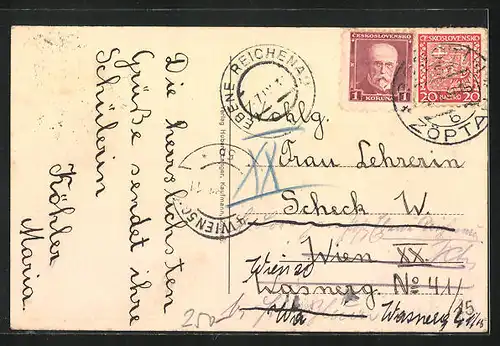 Die herzlichsten
Grüße sendet ihre
Schülerin
Köhler
Maria.
EBENE REICHENAU
ČESKOSLOVENSKO
1 KORUNA 1
ČESKOSLOVENSKO
20 20
ZÖPTAU
b
WIEN 50
Wohlg.
Frau Lehrerin
Scheck W
Wien XX.
XX
Wien 20
Wasnerg. No 41/
15
Wasnerg
250